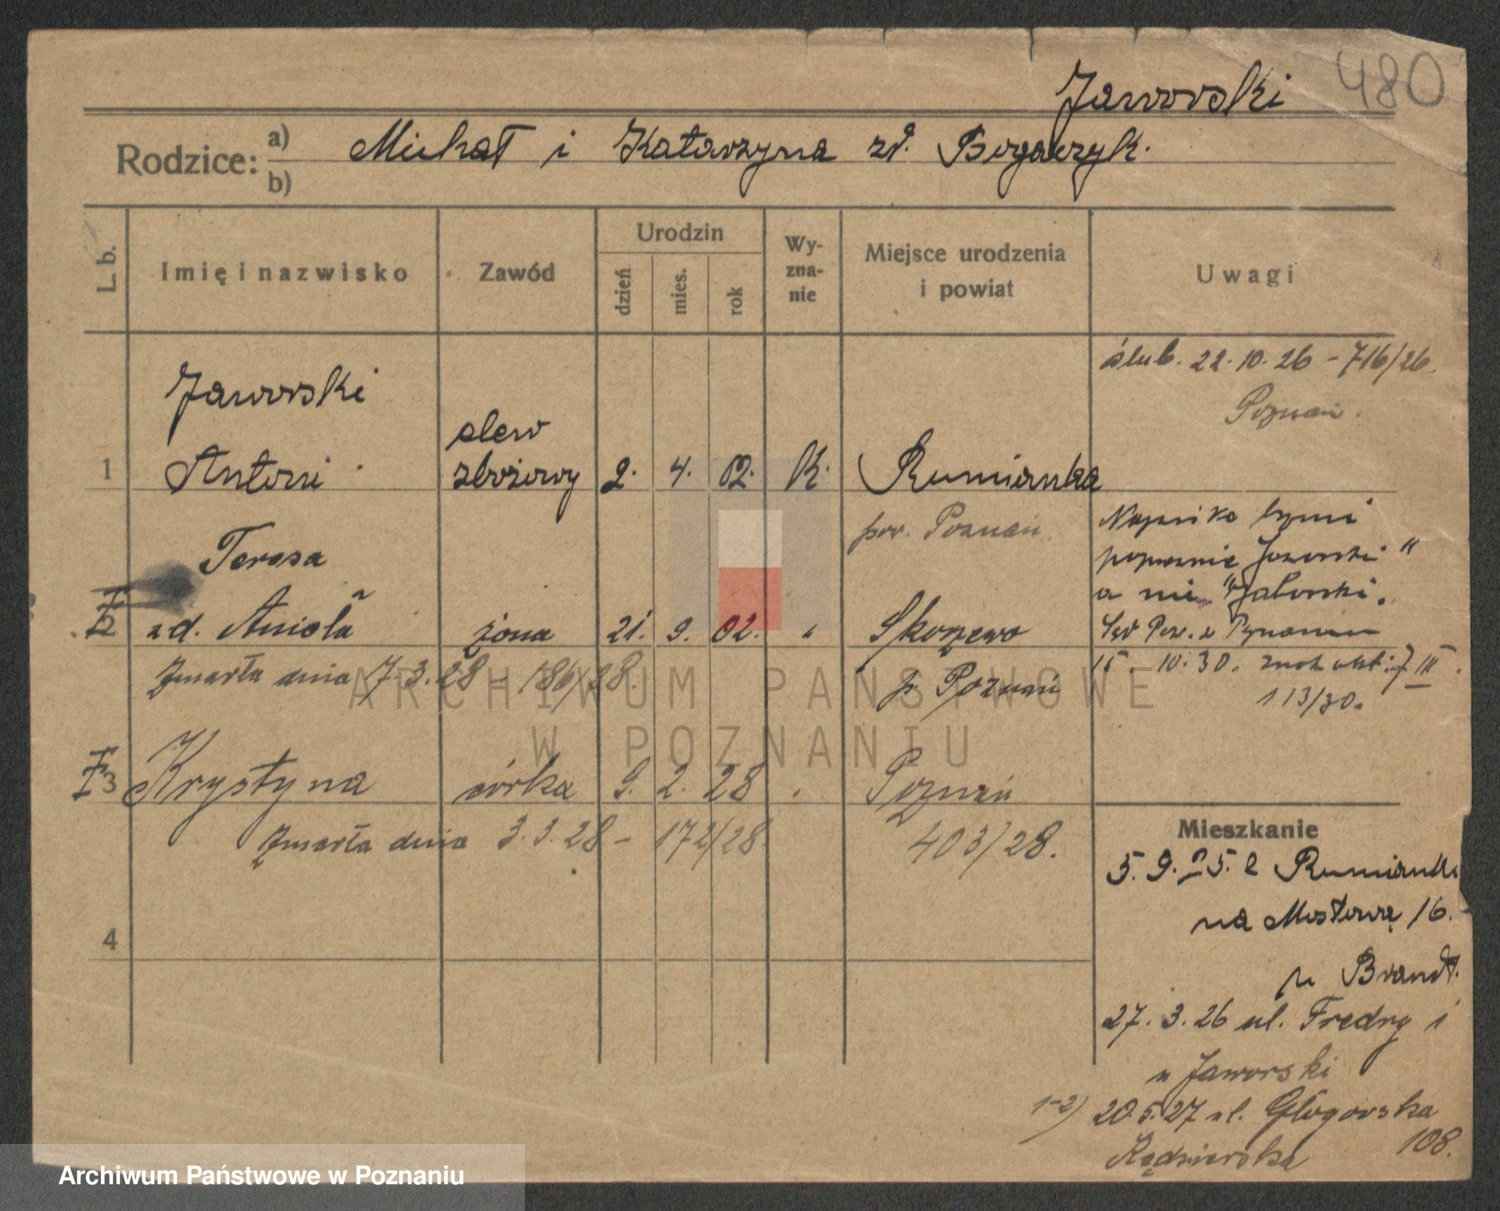 Jaworski 480
Rodzice: a) Michał i Katarzyna zd. Bogaczyk.
b)
L. b.
Imię i nazwisko
Zawód
Urodzin
dzień
mies.
rok
Wy-
zna-
nie
Miejsce urodzenia
i powiat
Uwagi
ślub. 22.10.26 - 716/26.
Poznań.
Jaworski
elew
1 Antoni zbożowy 2. 4. 02. K. Rumianka
pow. Poznań.
brzmi
poprawnie Jaworski"
a nie "Jaborski.
Teresa
2 zd. Anioła żona 21. 9. 02. " Skorzewo
p. Poznań
Zmarła dnia 7.3.28 - 186/28.
15. 10.30. 7 III.
113/30.
3 Krystyna córka 9. 2. 28 " Poznań
403/28.
Zmarła dnia 3.3.28 - 172/28
4
Mieszkanie
5.9.25. z Rumianki
na Mostową 16.
u Brandt.
27.3.26 ul. Fredry 1
u Jaworski
1-2) 20.5.27 ul. Głogowska
108.
ARCHIWUM PAŃSTWOWE
W POZNANIU
Archiwum Państwowe w Poznaniu